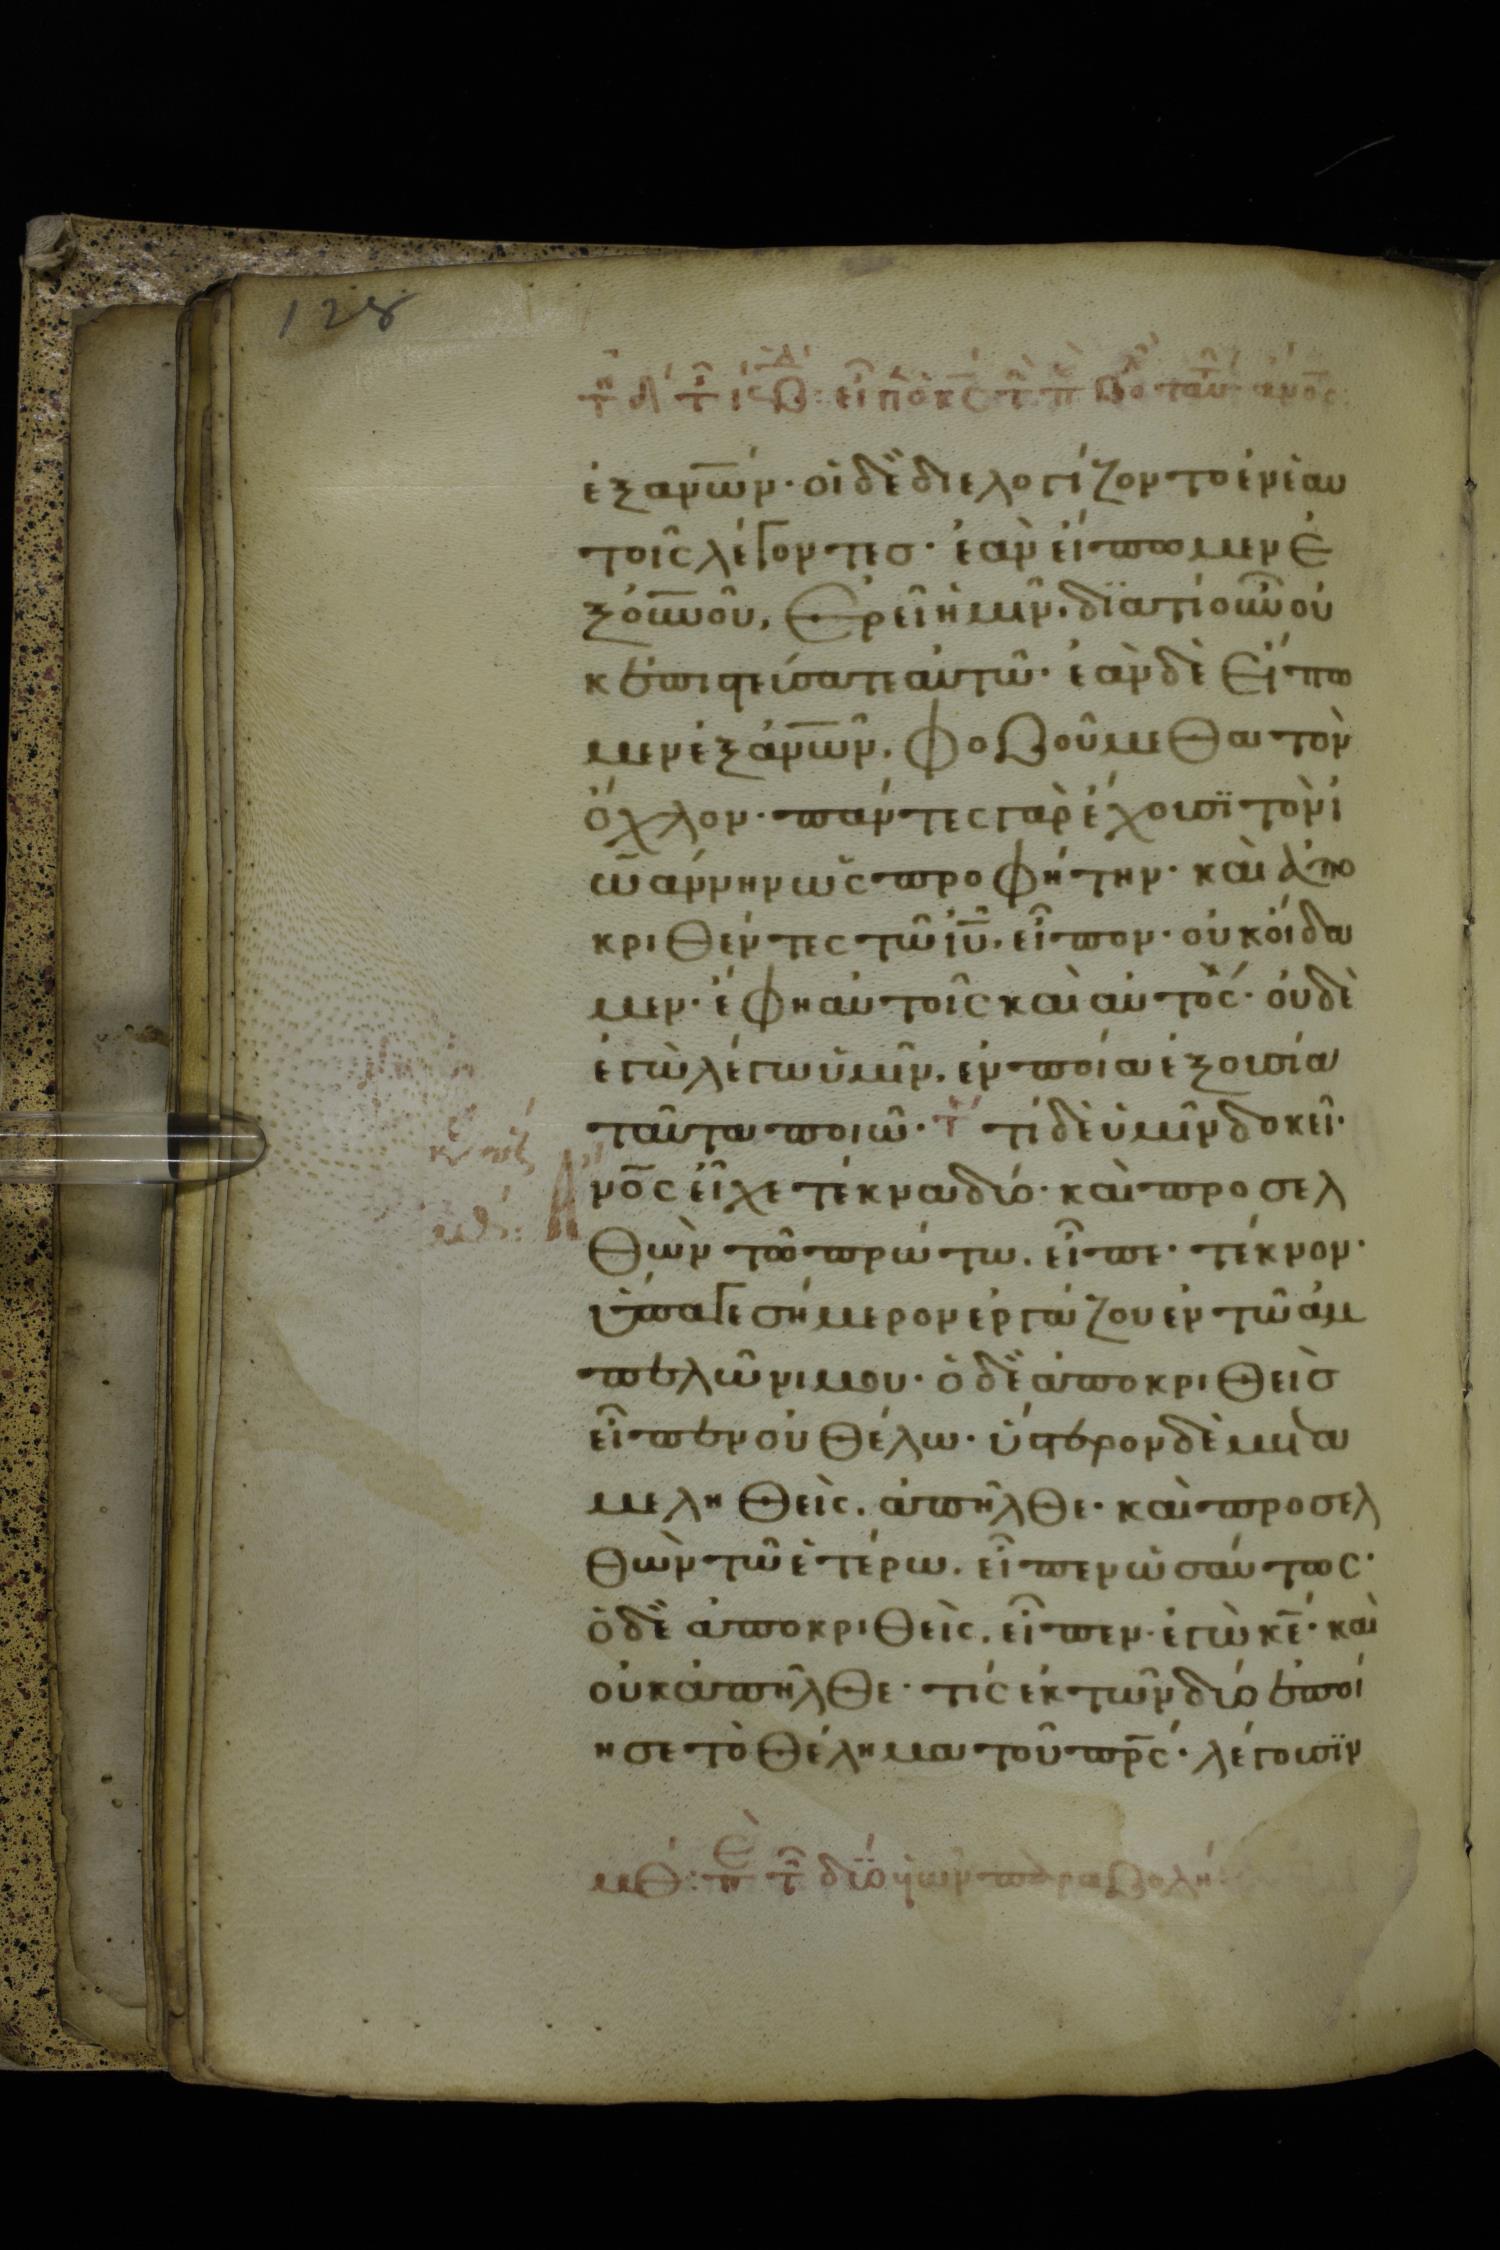 128
ἐξ ἀν̅ω̅ν· οἱ δὲ διελογίζοντο ἐν ἑαυ
τοῖς λέγοντες· ἐὰν εἴπωμεν ἐ
ξ ο̅υ̅ν̅ο̅ῦ, ἐρεῖ ἡμῖν. διατί οὖν οὐ
κ ἐπιστεύσατε αὐτῶ· ἐὰν δὲ εἴπω
μεν ἐξ ἀν̅ω̅ν, φοβούμεθα τὸν
ὄχλον· πάντες γὰρ ἔχουσϊ τὸν ἰ
ωάννην ὡς προφήτην· καὶ ἀπο
κριθέντες τῶ ι̅υ̅. εἶπον· οὐκ οἴδα
μεν· ἔφη αὐτοῖς καὶ αὐτός· οὐδὲ
ἐγὼ λέγω ὑμῖν. ἐν ποία ἐξουσία
ταῦτα ποιῶ· τί δὲ ὑμῖν δοκεῖ·
Α ν̅ο̅ς εἶχε τέκνα δύο· καὶ προσελ
θὼν τῶ πρώτω. εἶπε· τέκνον·
ὕπαγε σήμερον ἐργάζου ἐν τῶ ἀμ
πελῶνι μου· ὁ δὲ ἀποκριθεὶσ
εἶπεν οὐ θέλω· ὕστερον δὲ μετα
μεληθεὶς. ἀπῆλθε· καὶ προσελ
θὼν τῶ ἑτέρω. εἶπεν ὡσαύτως·
ὁ δὲ ἀποκριθεὶς. εἶπεν· ἐγὼ κ̅ε̅· καὶ
οὐκ ἀπῆλθε· τίς ἐκ τῶν δύο ἐποί
ησε τὸ θέλημα τοῦ π̅ρ̅ς· λέγουσϊν
μθ: π τ δύο ϋἱῶν παραβολή: